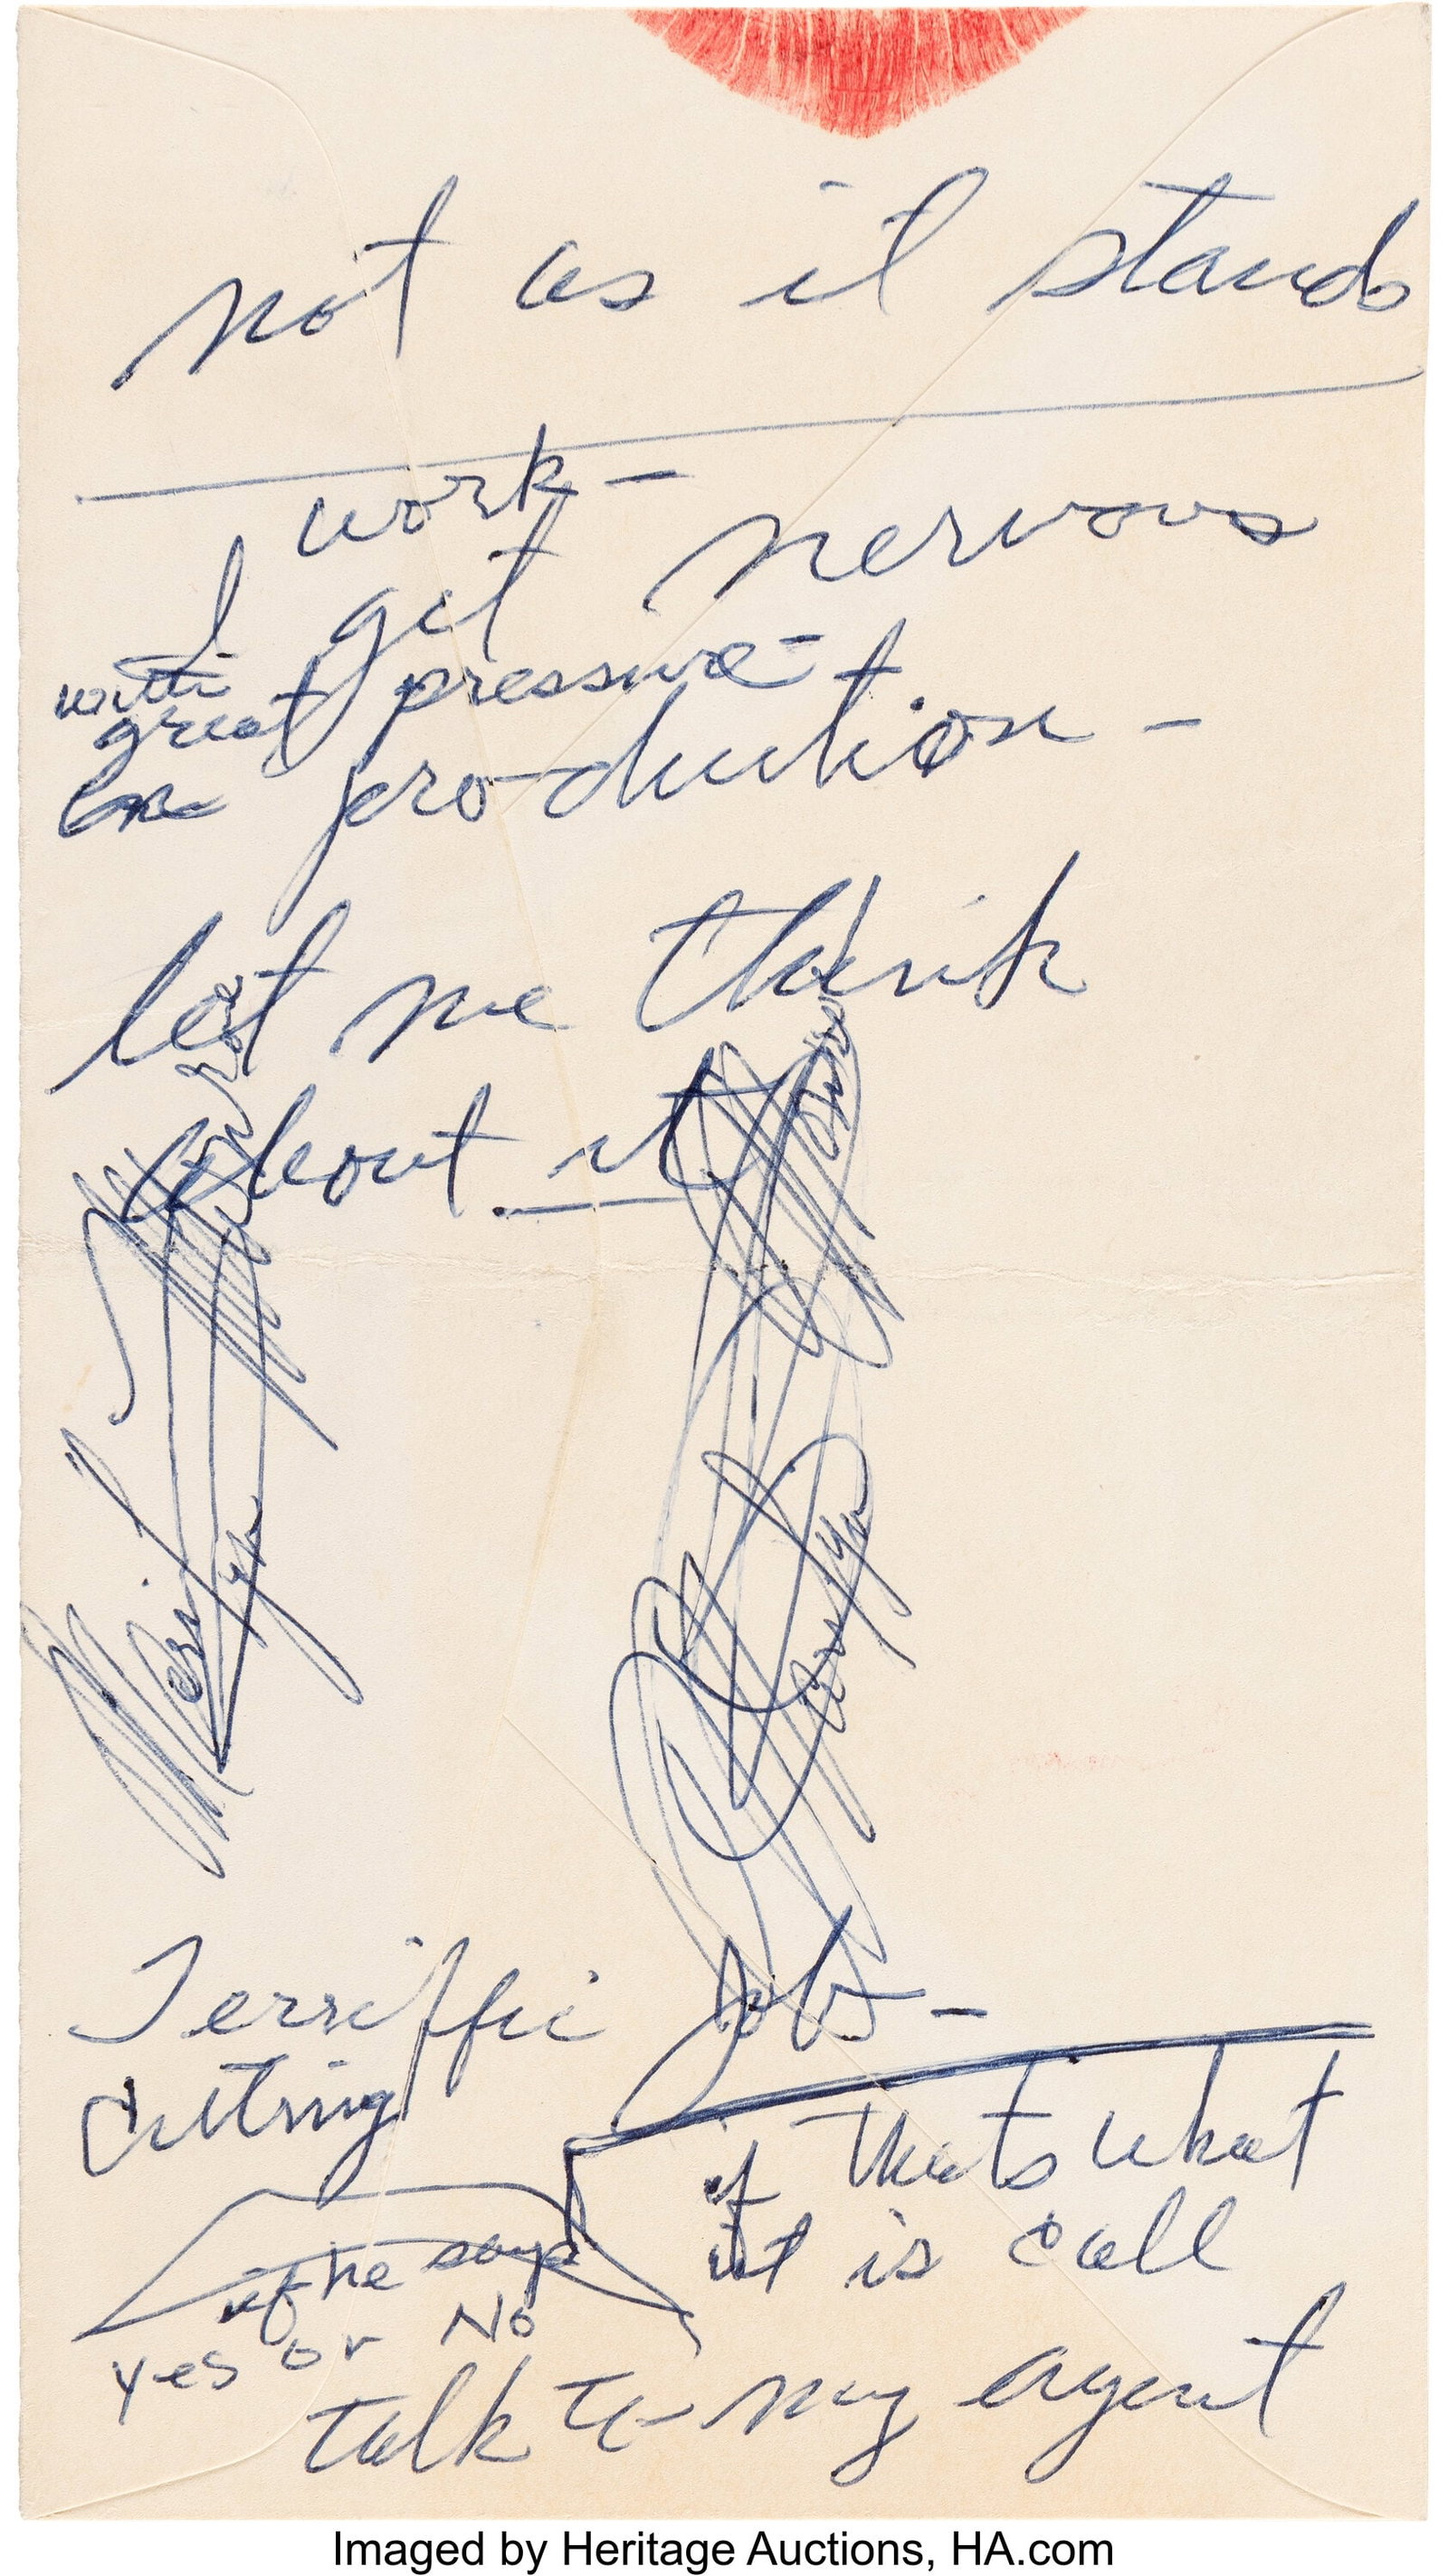 not as it stands
work –
I get nervous
with
great pressure –
production –
let me think
about it
Marilyn
Marilyn Monroe
Terriffic Job –
Cutting
if thats what
it is call
if he says
yes or No
talk to my agent
Imaged by Heritage Auctions, HA.com